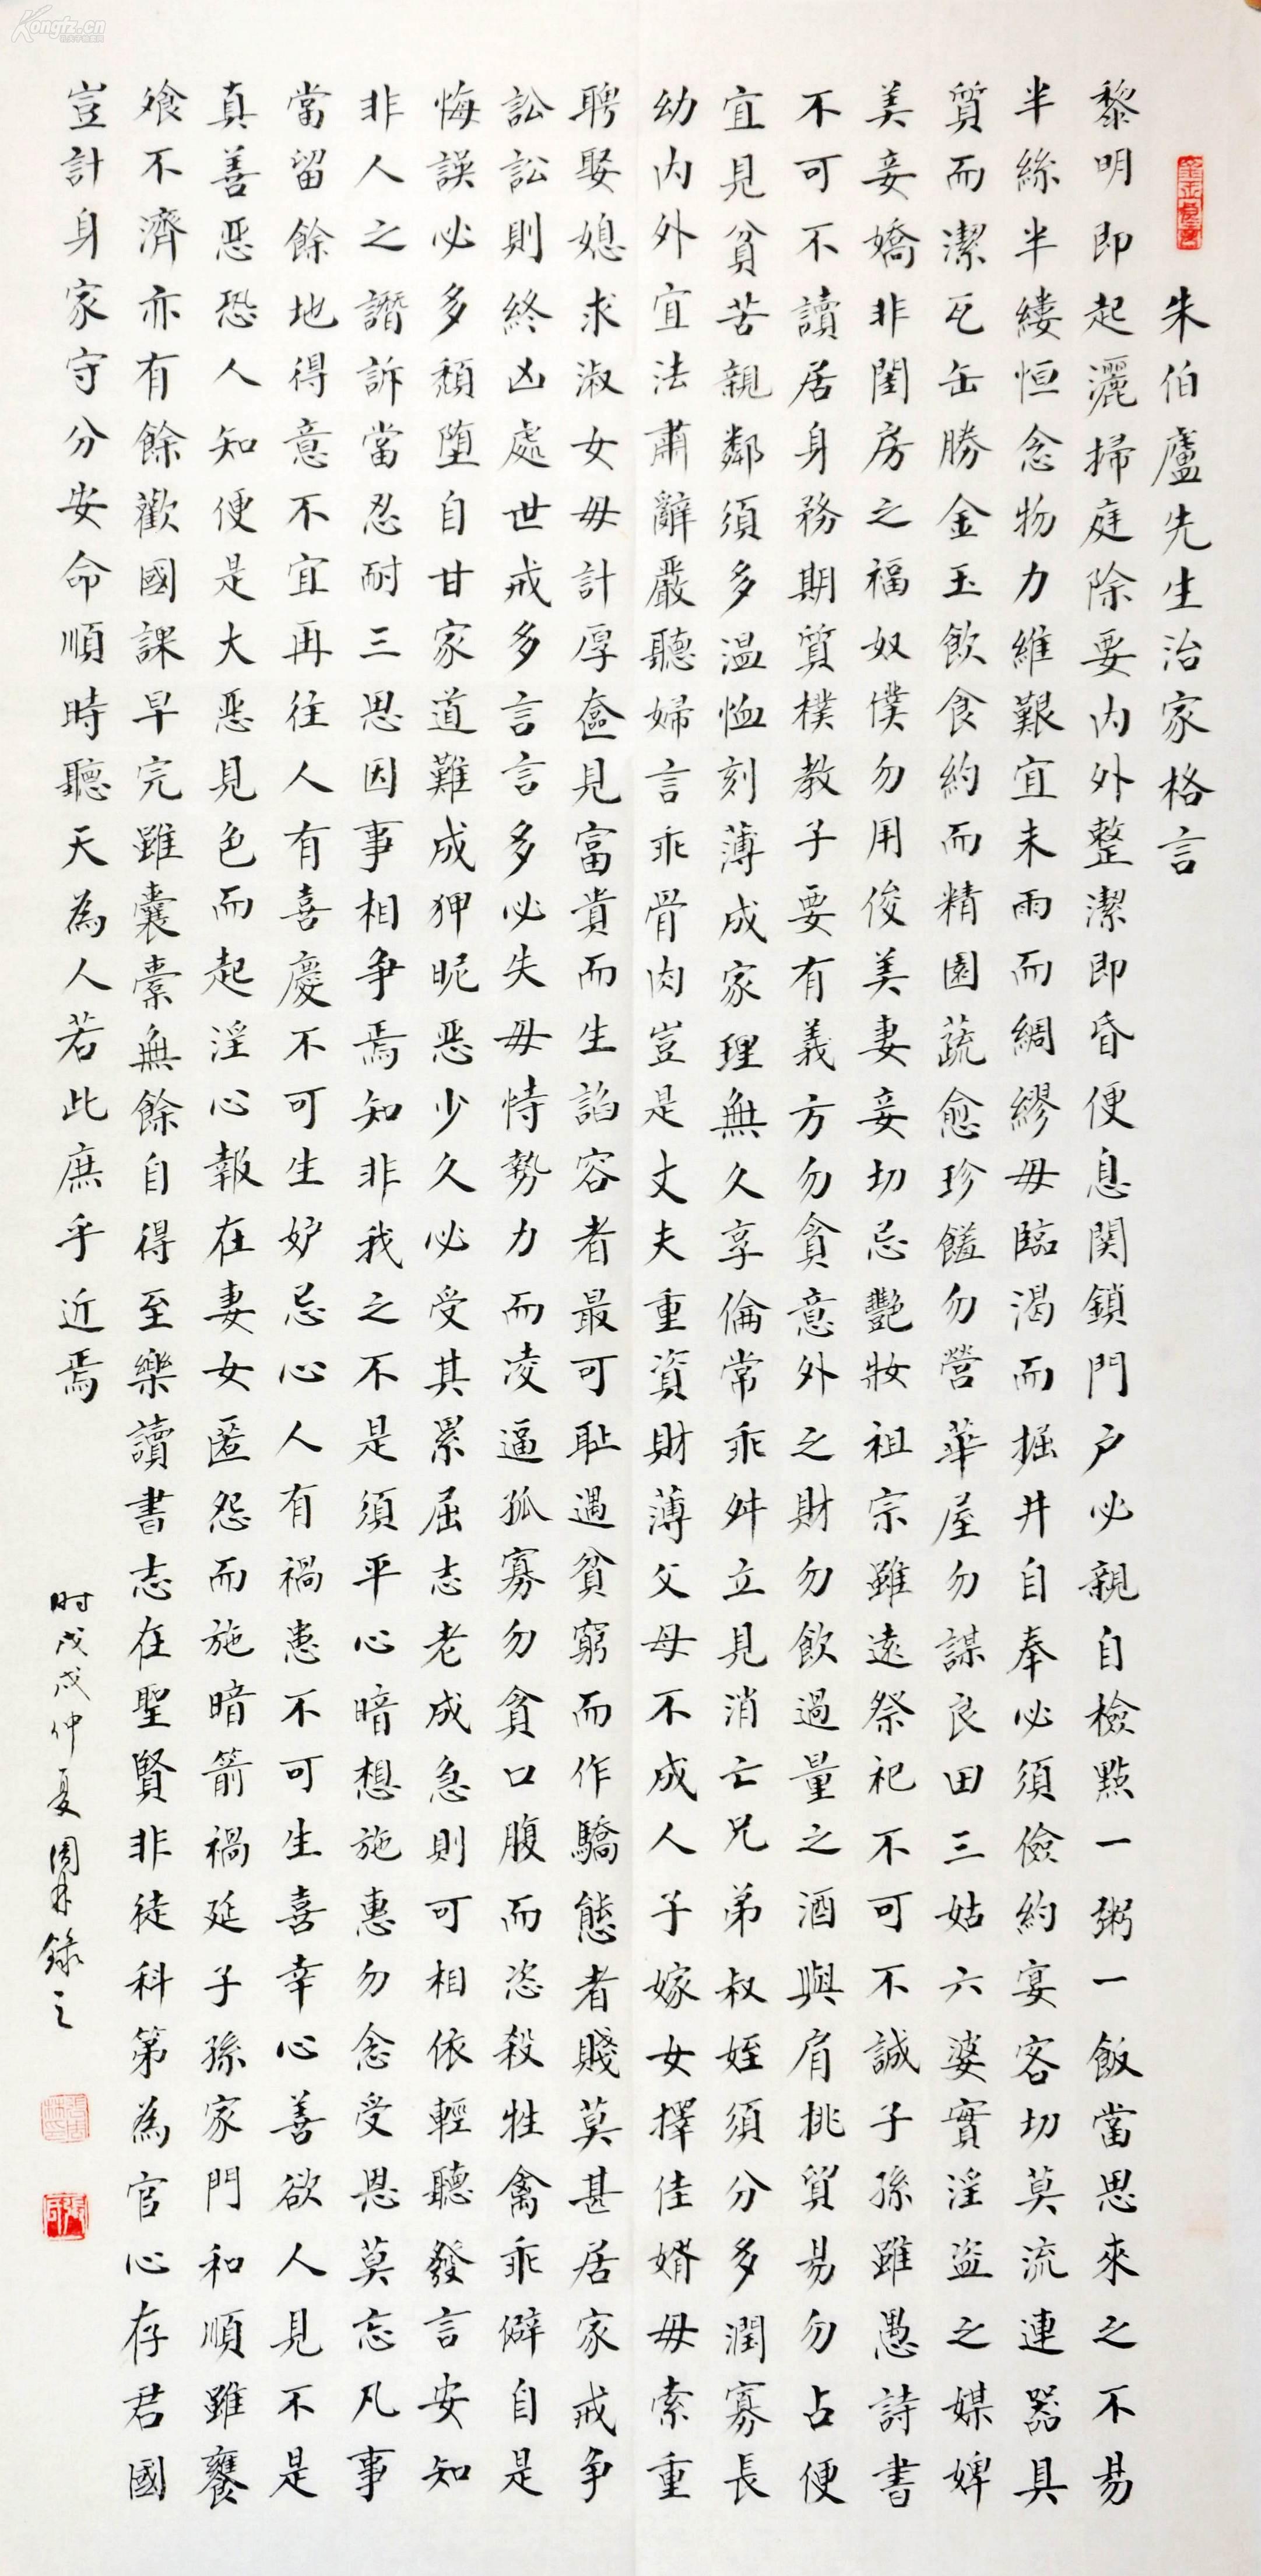 朱伯廬先生治家格言
黎明即起灑掃庭除要内外整潔即昏便息関鎖門户必親自檢點一粥一飯當思來之不易
半絲半縷恒念物力維艱宜未雨而綢繆毋臨渴而掘井自奉必須儉約宴客切莫流連器具
質而潔瓦缶勝金玉飲食約而精園蔬愈珍饈勿營華屋勿謀良田三姑六婆實淫盗之媒婢
美妾嬌非閨房之福奴僕勿用俊美妻妾切忌艷妝祖宗雖遠祭祀不可不誠子孫雖愚詩書
不可不讀居身務期質樸教子要有義方勿貪意外之財勿飲過量之酒與肩挑貿易勿占便
宜見貧苦親鄰須多温恤刻薄成家理無久享倫常乖舛立見消亡兄弟叔姪須分多潤寡長
幼内外宜法肅辭嚴聽婦言乖骨肉豈是丈夫重資財薄父母不成人子嫁女擇佳婿毋索重
聘娶媳求淑女毋計厚奩見富貴而生諂容者最可耻遇貧窮而作驕態者賤莫甚居家戒争
訟訟則終凶處世戒多言言多必失毋恃勢力而凌逼孤寡勿貪口腹而恣殺牲禽乖僻自是
悔誤必多頹堕自甘家道難成狎昵惡少久必受其累屈志老成急則可相依輕聽發言安知
非人之譖訴當忍耐三思因事相争焉知非我之不是須平心暗想施惠勿念受恩莫忘凡事
當留餘地得意不宜再往人有喜慶不可生妒忌心人有禍患不可生喜幸心善欲人見不是
真善惡恐人知便是大惡見色而起淫心報在妻女匿怨而施暗箭禍延子孫家門和順雖饔
飧不濟亦有餘歡國課早完雖囊橐無餘自得至樂讀書志在聖賢非徒科第為官心存君國
豈計身家守分安命順時聽天為人若此庶乎近焉
时戊戌仲夏周林錄之
Kongfz.cn